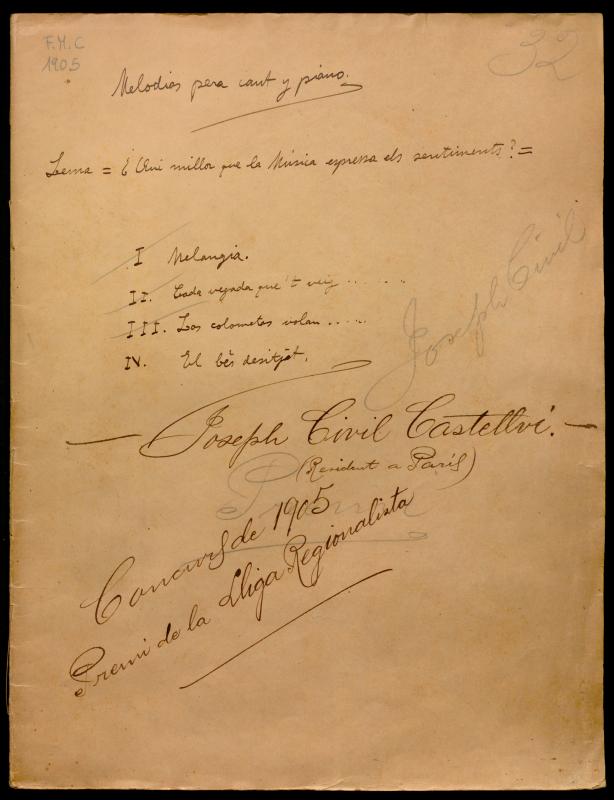 F.M.C
1905
32
Melodias pera cant y piano.
Lema = ¿ Qui millor que la Música expressa els sentiments? =
I Melangia.
II. Cada vegada que't veig .......
III. Las colometes volan .....
IV. El bès desitjat.
Joseph Civil
— Joseph Civil Castellví. —
(Resident a París)
Concurs de 1905
Premi de la Lliga Regionalista